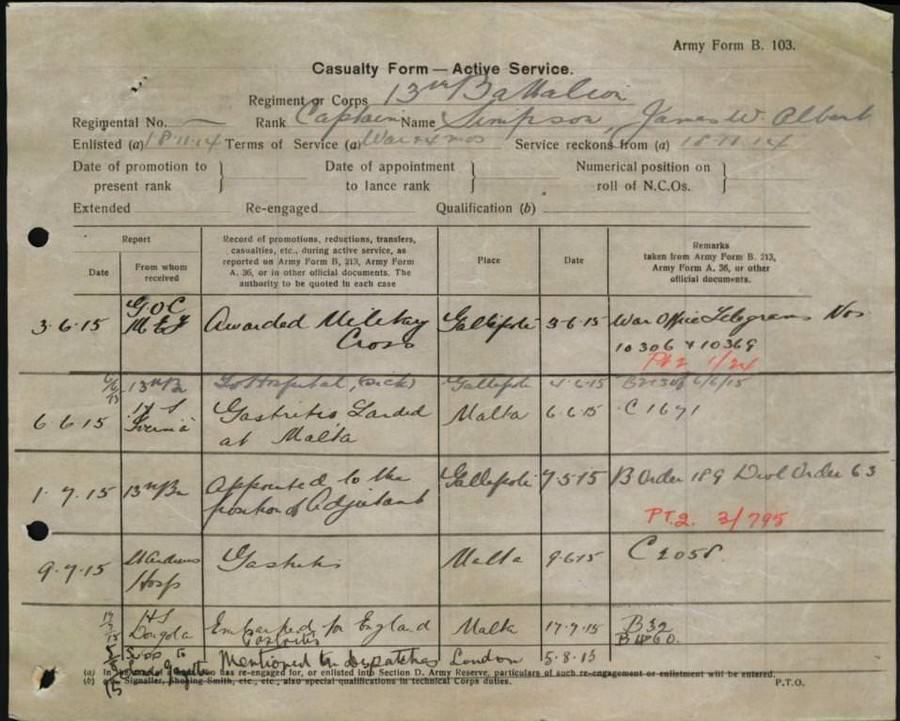 Army Form B. 103.
Casualty Form — Active Service.
Regiment or Corps 13th Battalion
Regimental No. Rank Captain Name Simpson, James W. Albert
Enlisted (a) 18.11.14 Terms of Service (a) War + 4 mos Service reckons from (a) 18 11 14
Date of promotion to present rank } Date of appointment to lance rank } Numerical position on roll of N.C.Os. }
Extended Re-engaged Qualification (b)
Report
Date
From whom received
Record of promotions, reductions, transfers, casualties, etc., during active service, as reported on Army Form B, 213, Army Form A. 36, or in other official documents. The authority to be quoted in each case
Place
Date
Remarks taken from Army Form B. 213, Army Form A. 36, or other official documents.
3.6.15 GOC MEF Awarded Military Cross Gallipoli 3.6.15 War Office Telegrams Nos 10306 & 10369
Pt 2 1/24
13th Bn To Hospital, (sick) Gallipoli 6/6/15
6 6 15 H S Gastritis Landed at Malta Malta 6 6 15 C 1671
1.7.15 13th Bn Appointed to the position of Adjutant Gallipoli 7.5.15 B Order 189 Divl Order 63
PT.2. 3/795
9.7.15 St Andrews Hosp Gastritis Malta 9.6.15 C 2058.
H S Dongola Embarked for England Gastritis Malta 17.7.15 B 32
B 4860.
Supp to London Gazette Mentioned in despatches London 5.8.15
(a) In who has re-engaged for, or enlisted into Section D. Army Reserve, particulars of such re-engagement or enlistment will be entered.
(b) Signaller, Shoeing Smith, etc., etc., also special qualifications in technical Corps duties.
P.T.O.